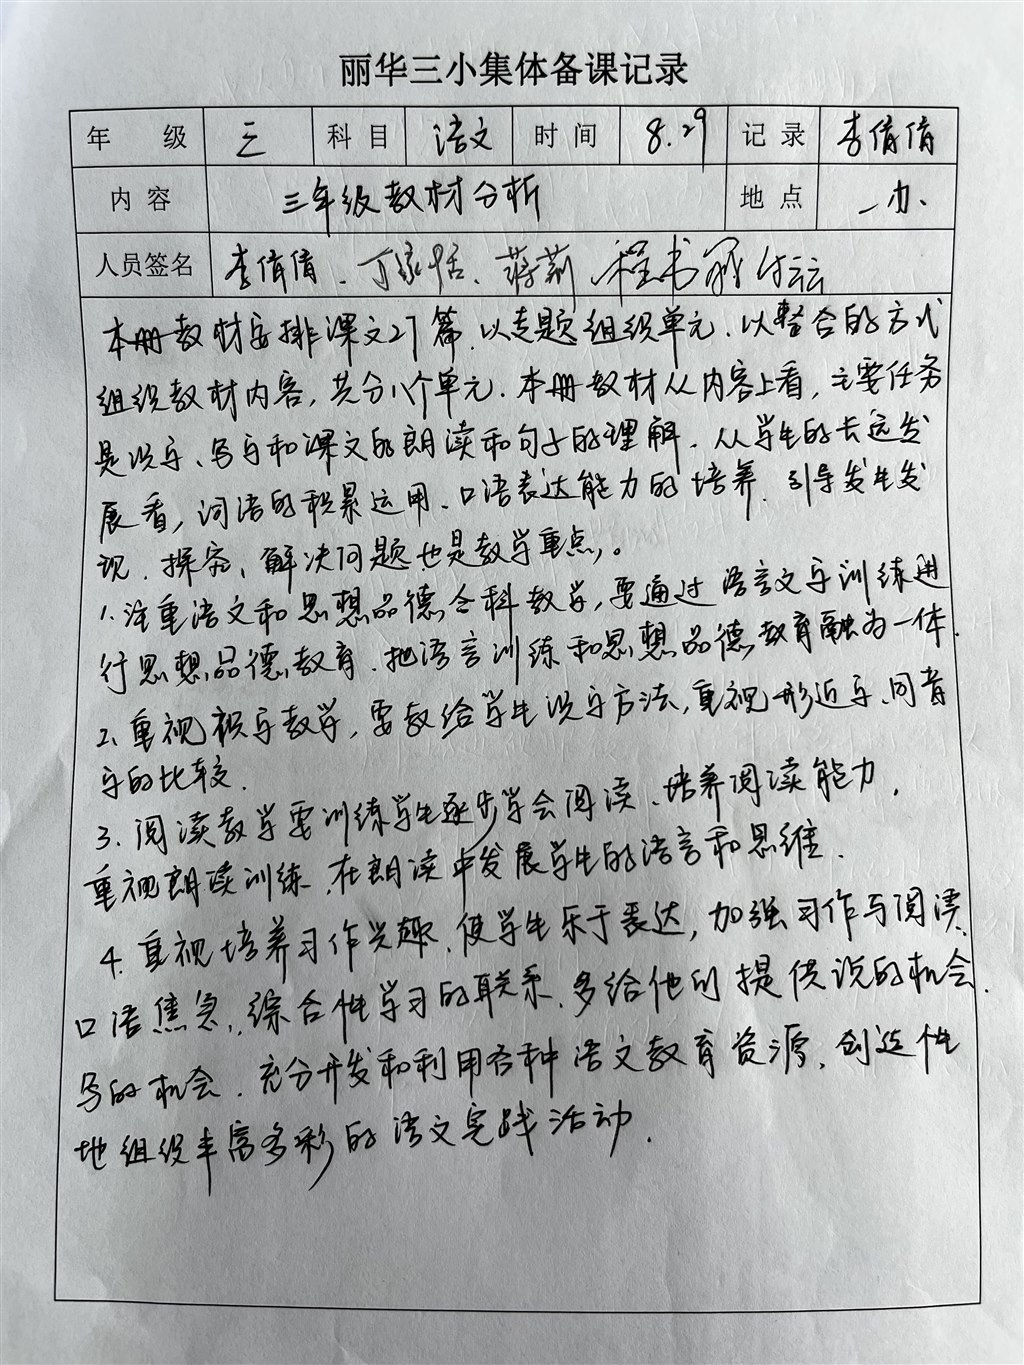 丽华三小集体备课记录
年 级 三 科 目 语文 时 间 8.29 记 录 李倩倩
内 容 三年级教材分析 地 点 一办.
人员签名 李倩倩、丁家恬、蒋莉、程书 付云
本册教材安排课文27篇,以专题组织单元,以整合的方式
组织教材内容,共分八个单元.本册教材从内容上看,主要任务
是识字、写字和课文的朗读和句子的理解.从学生的长远发
展看,词语的积累运用、口语表达能力的培养、引导发生发
现、探究、解决问题也是教学重点。
1.注重语文和思想品德合科教学,要通过语言文字训练进
行思想品德教育.把语言训练和思想品德教育融为一体.
2.重视识字教学,要教给学生识字方法,重视形近字、同音
字的比较.
3.阅读教学要训练学生逐步学会阅读、培养阅读能力,
重视朗读训练,在朗读中发展学生的语言和思维.
4.重视培养习作兴趣,使学生乐于表达,加强习作与阅读、
口语焦急、综合性学习的联系,多给他们提供说的机会.
写的机会.充分开发和利用各种语文教育资源,创造性
地组织丰富多彩的语文实践活动.